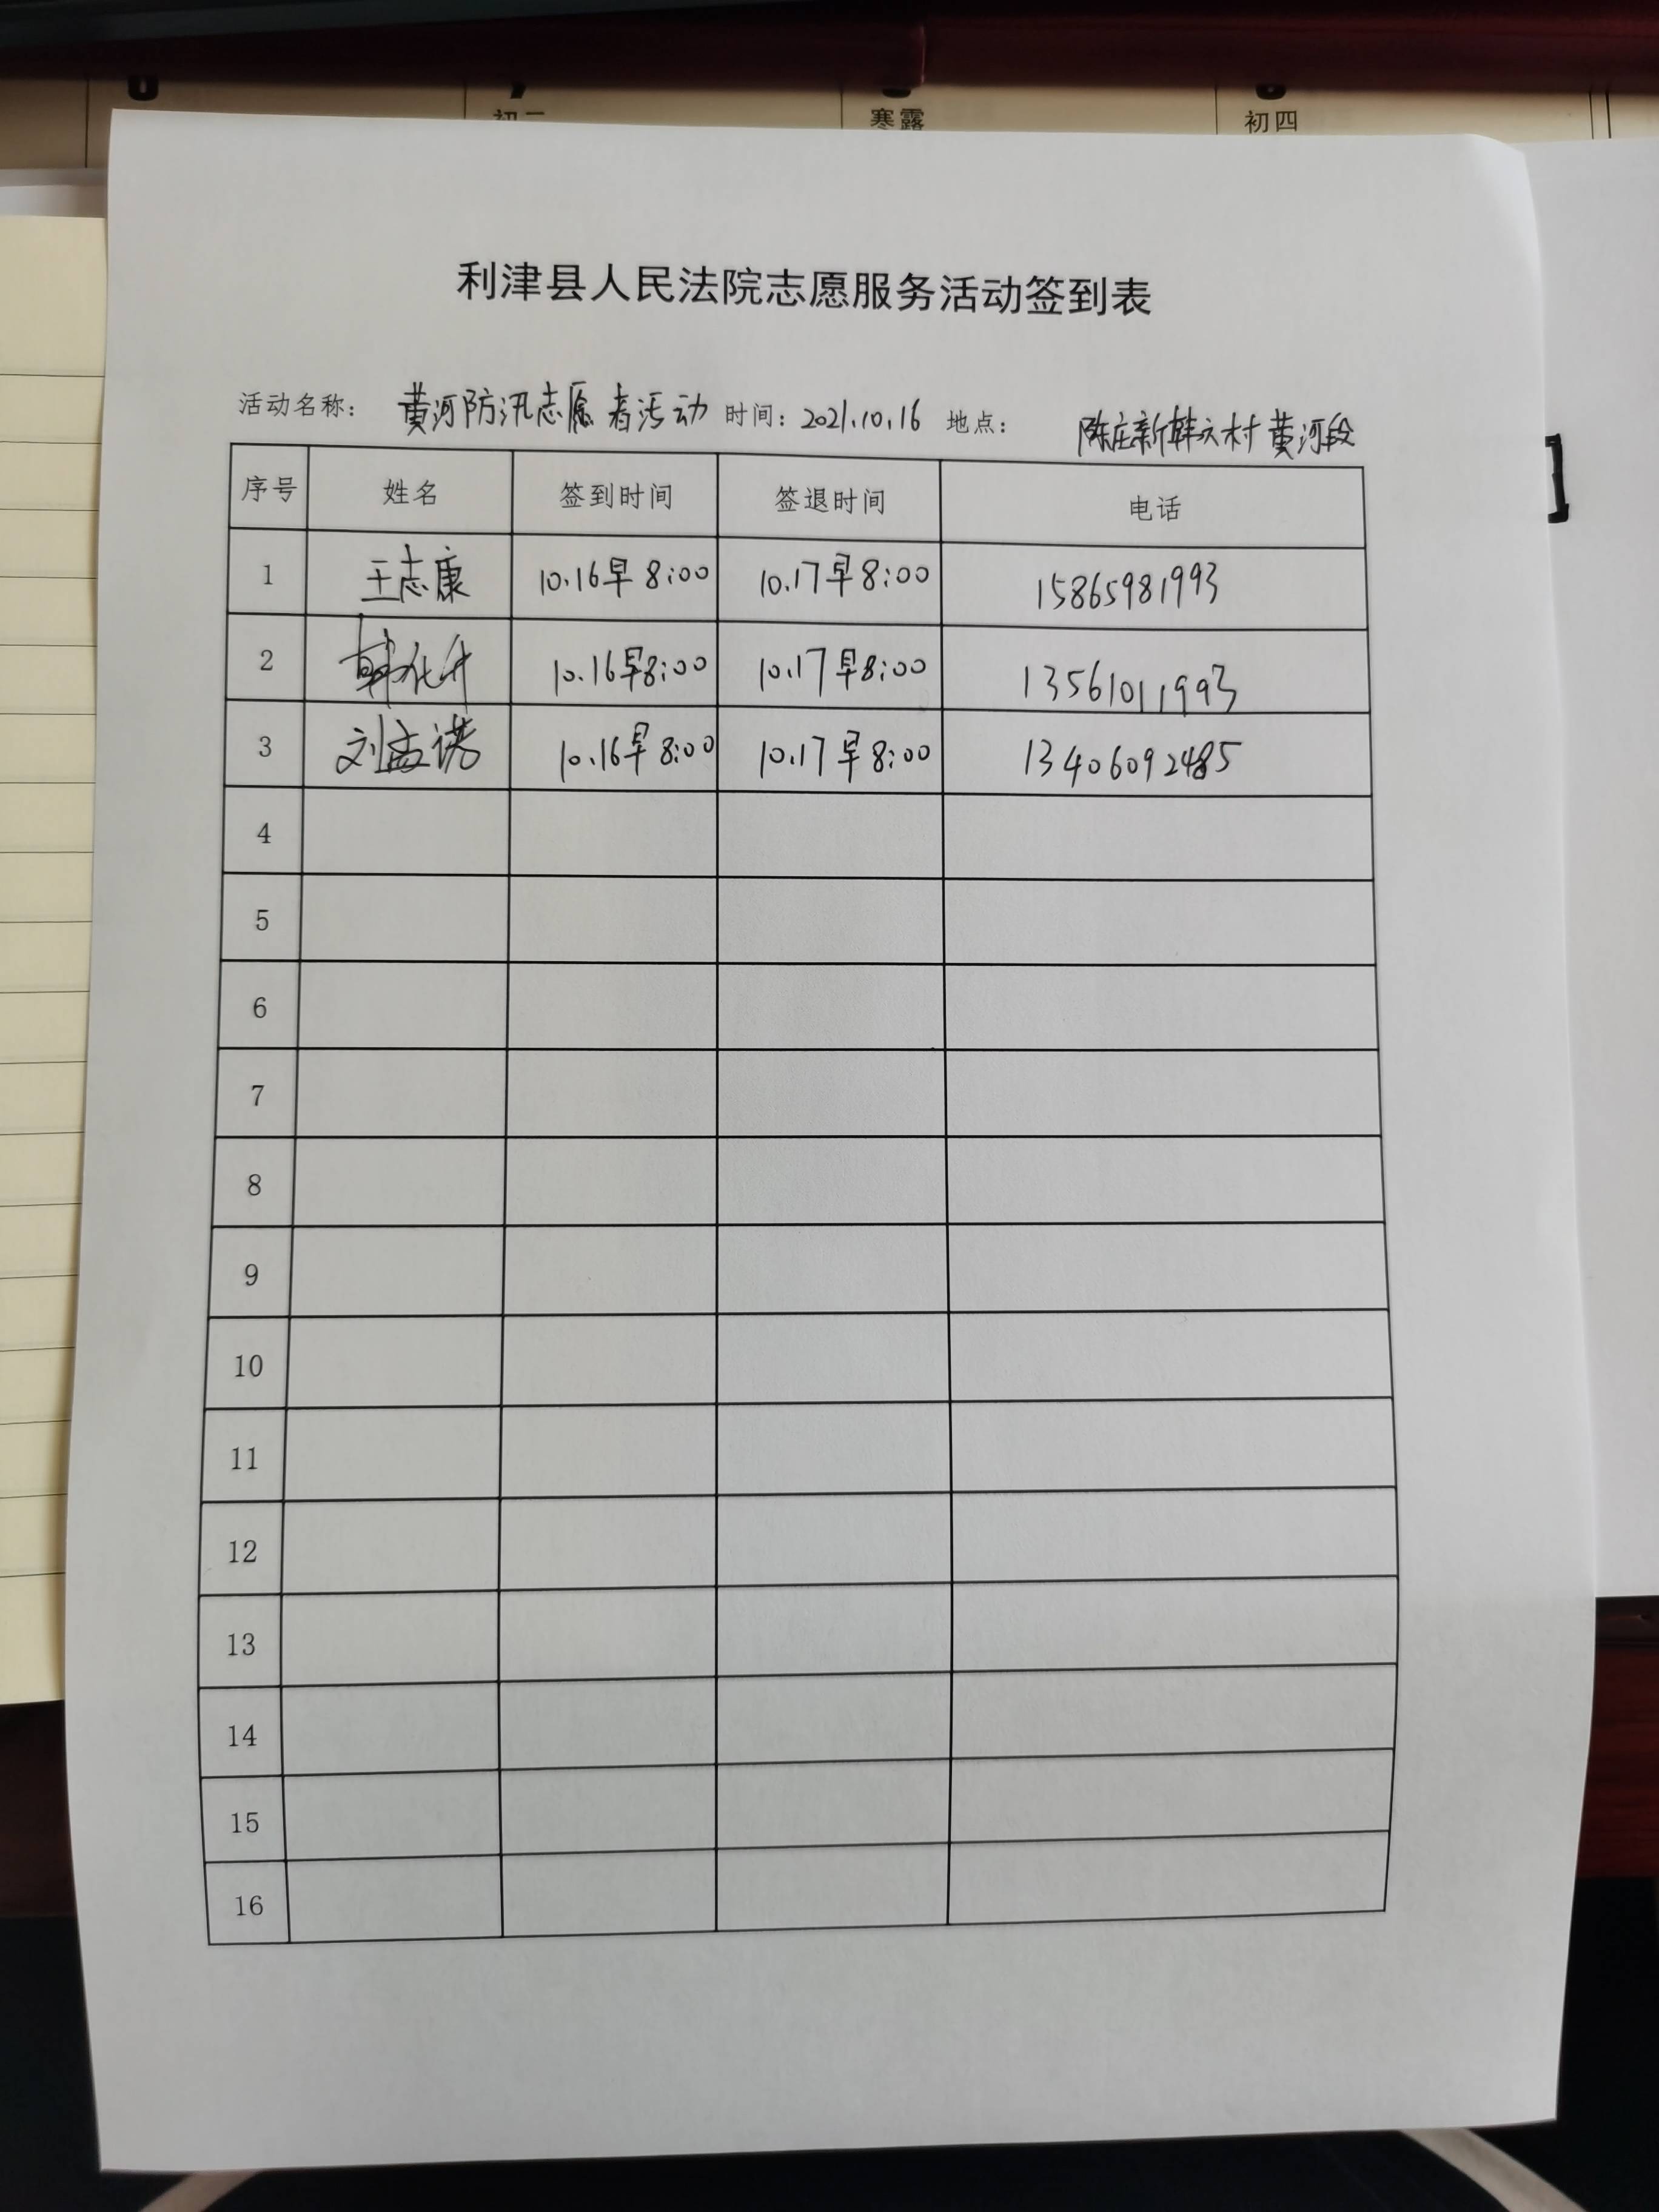 初二 寒露 初四
利津县人民法院志愿服务活动签到表
活动名称: 黄河防汛志愿者活动 时间: 2021.10.16 地点: 陈庄新韩六村黄河段
序号 姓名 签到时间 签退时间 电话
1 王志康 10.16早8:00 10.17早8:00 15865981993
2 韩化升 10.16早8:00 10.17早8:00 13561011993
3 刘孟诺 10.16早8:00 10.17早8:00 13406092485
4
5
6
7
8
9
10
11
12
13
14
15
16